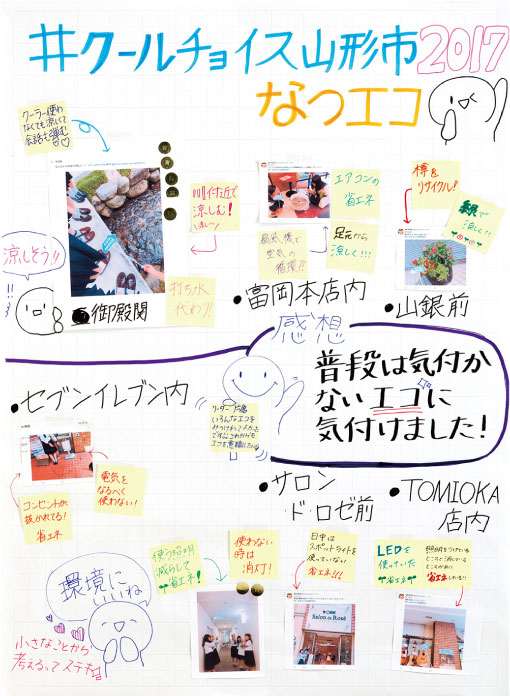 #クールチョイス山形市2017
なつエコ
クーラー使わ
なくても涼しくて
会話も弾む
川付近で
涼しむ!
エアコンの
省エネ
樽を
リサイクル!
緑で
涼しく!!
扇風機で
空気の
循環!!
足元から
涼しく!!!
涼しそう!!
打ち水
代わり!
御殿関
•冨岡本店内
•山銀前
感想
普段は気付か
ないエコに
気付けました!
•セブンイレブン内
コンセントが
抜かれてる!
省エネ
電気を
なるべく
使わない!
•サロン
ド・ロゼ前
•TOMIOKA
店内
環境に
いいね
小さなことから
考えるってステキ
使う照明
減らして
省エネ!
使わない
時は
消灯!
日中は
スポットライトを
使っていない
省エネ!!!
LEDを
使っていた
省エネ
照明をつけている
ところと消している
ところがあり
省エネしている!!
Salon de Rosé